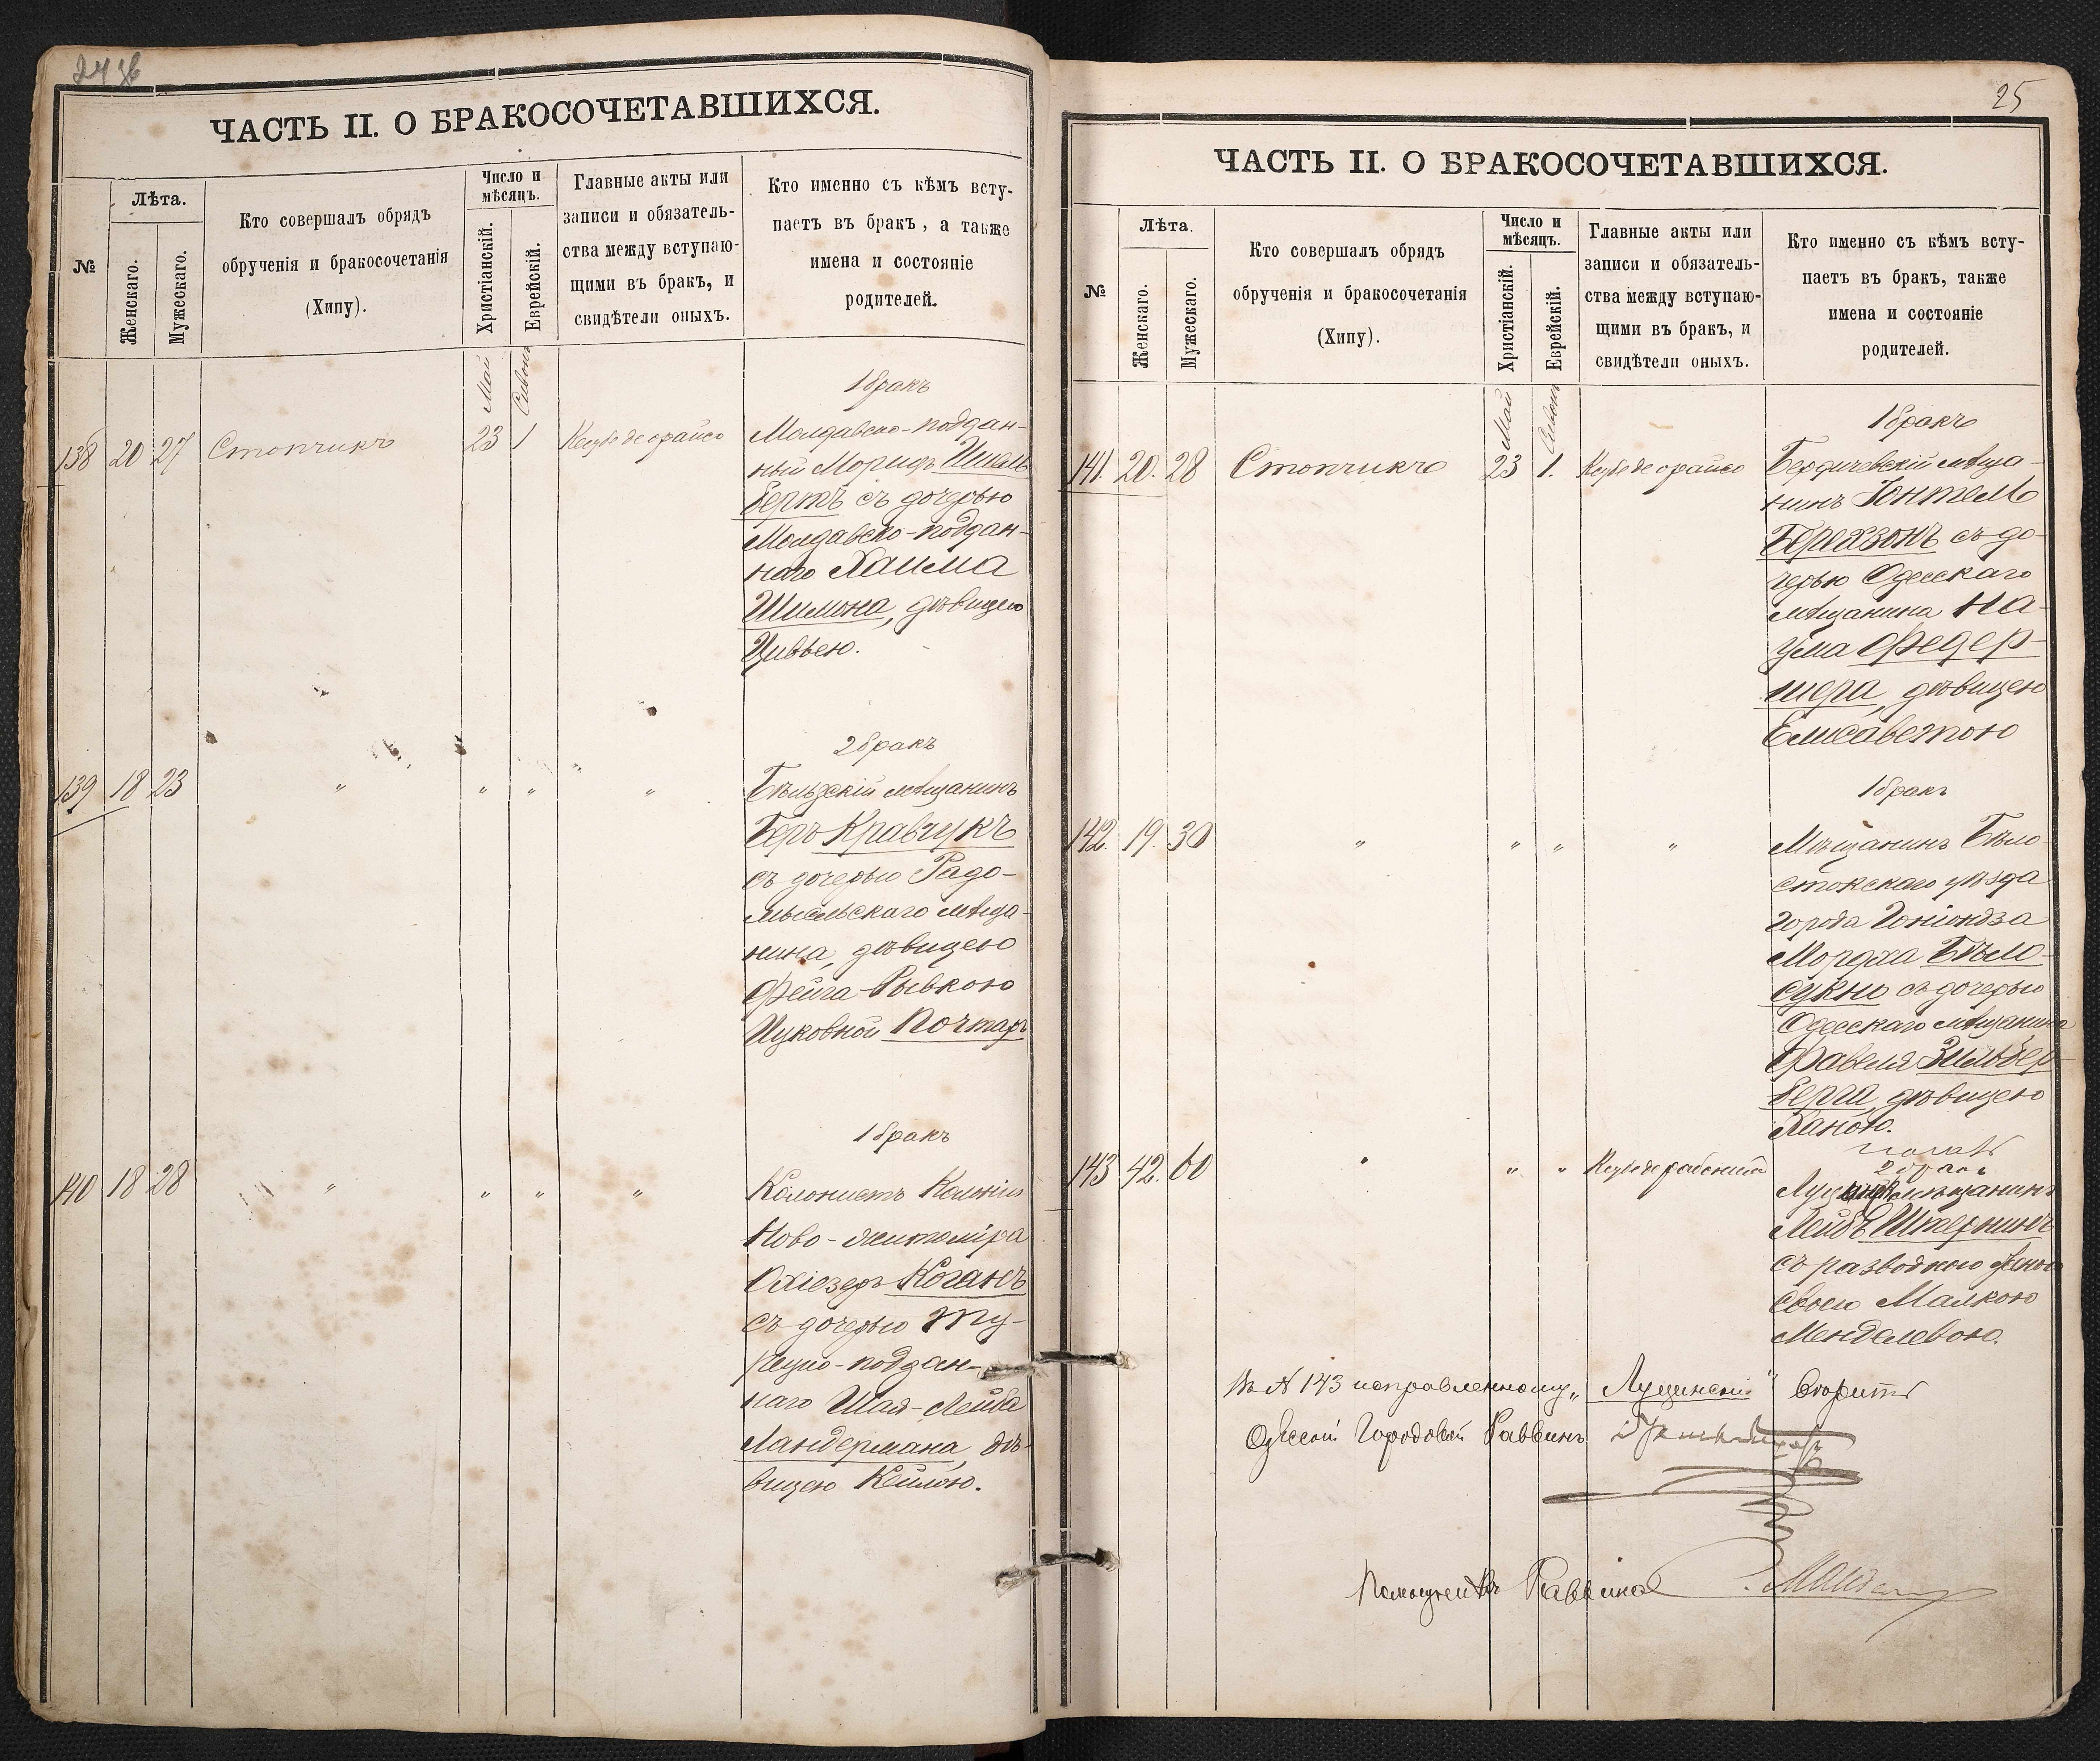 24
ЧАСТЬ II. О БРАКОСОЧЕТАВШИХСЯ.
№
Лѣта.
Женскаго.
Мужескаго.
Кто совершалъ обрядъ
обрученія и бракосочетанія
(Хипу).
Число и
мѣсяцъ.
Христіанскій.
Еврейскій.
Главные акты или
записи и обязатель-
ства между вступаю-
щими въ бракъ, и
свидѣтели оныхъ.
Кто именно съ кѣмъ всту-
паетъ въ бракъ, а также
имена и состояніе
родителей.
Май
Сивонъ
1 бракъ
138 20 27 Стопчикъ 23 1
Молдавско-поддан-
ный Морицъ
бертъ съ дочерью
Молдавско-поддан-
наго Хаима
Шимона, дѣвицею
Цивьею.
2 бракъ
139 18 23 " " " " Бѣльзскій мѣщанинъ
Беръ Кравчукъ
съ дочерью Радо-
мысльскаго мѣща-
нина, дѣвицею
Фейга-Рывкою
Ицковной Почтаръ
1 бракъ
140 18 28 " " " " Колонистъ Колоніи
Ново-житоміра
Охіезеръ Коганъ
съ дочерью Ту-
рецко-поддан-
наго Шая-Лейба
Ландермана, дѣ-
вицею Кейлою.
25
ЧАСТЬ II. О БРАКОСОЧЕТАВШИХСЯ.
№
Лѣта.
Женскаго.
Мужескаго.
Кто совершалъ обрядъ
обрученія и бракосочетанія
(Хипу).
Число и
мѣсяцъ.
Христіанскій.
Еврейскій.
Главные акты или
записи и обязатель-
ства между вступаю-
щими въ бракъ, и
свидѣтели оныхъ.
Кто именно съ кѣмъ всту-
паетъ въ бракъ, также
имена и состояніе
родителей.
Май
Сивонъ
1 бракъ
141. 20. 28 Стопчикъ 23 1. Бердичевскій мѣща-
нинъ Юнтель
Берехзонъ съ до-
черью Одесскаго
мѣщанина На-
ума Федер-
шера, дѣвицею
Елисаветою
1 бракъ
142. 19. 30 " " " " Мѣщанинъ Бѣло-
стокскаго уѣзда
города Гоніондза
Мордха Бѣло-
сукно съ дочерью
Одесскаго мѣщанина
Фавеля Зильбер-
берга, дѣвицею
Ханою.
2 бракъ
143 42. 60 " " " мѣщанинъ
Лейбъ Штернинъ
съ разводною женою
своею Малкою
Менделевою.
Въ № 143 исправленному „Луцинскій“ вѣрить
Одесскій Городовой Раввинъ
Помощникъ Раввина